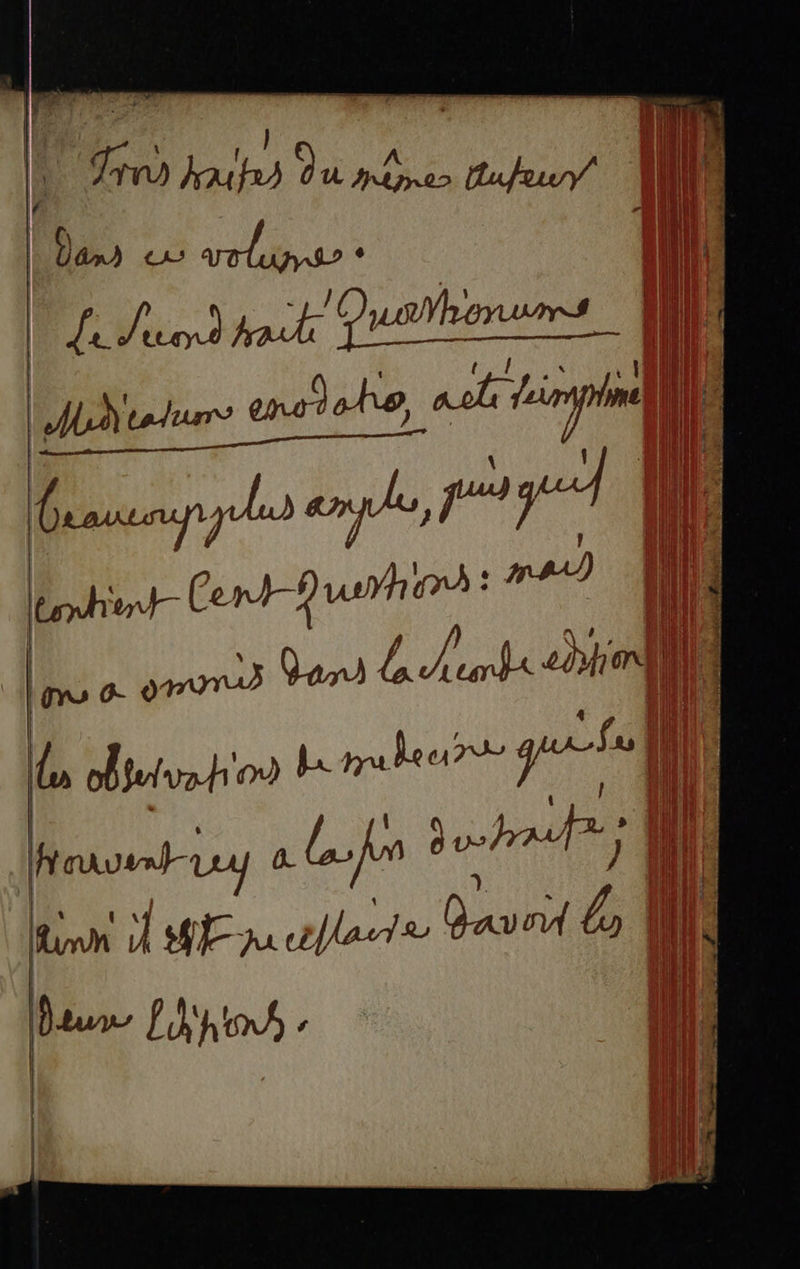 Trois traités du même auteur
Dans ce volume.
Le second traité Quæstionum
Medicarum enodatio, a été reimprimé
beaucoup plus ample, puis qu'il
contient Cent Questions: mais
on a omis dans la seconde edition
les observations de medecine qui se
trouvent icy a la fin du traité;
ainsi il est necessaire d'avoir les
deux Editions.